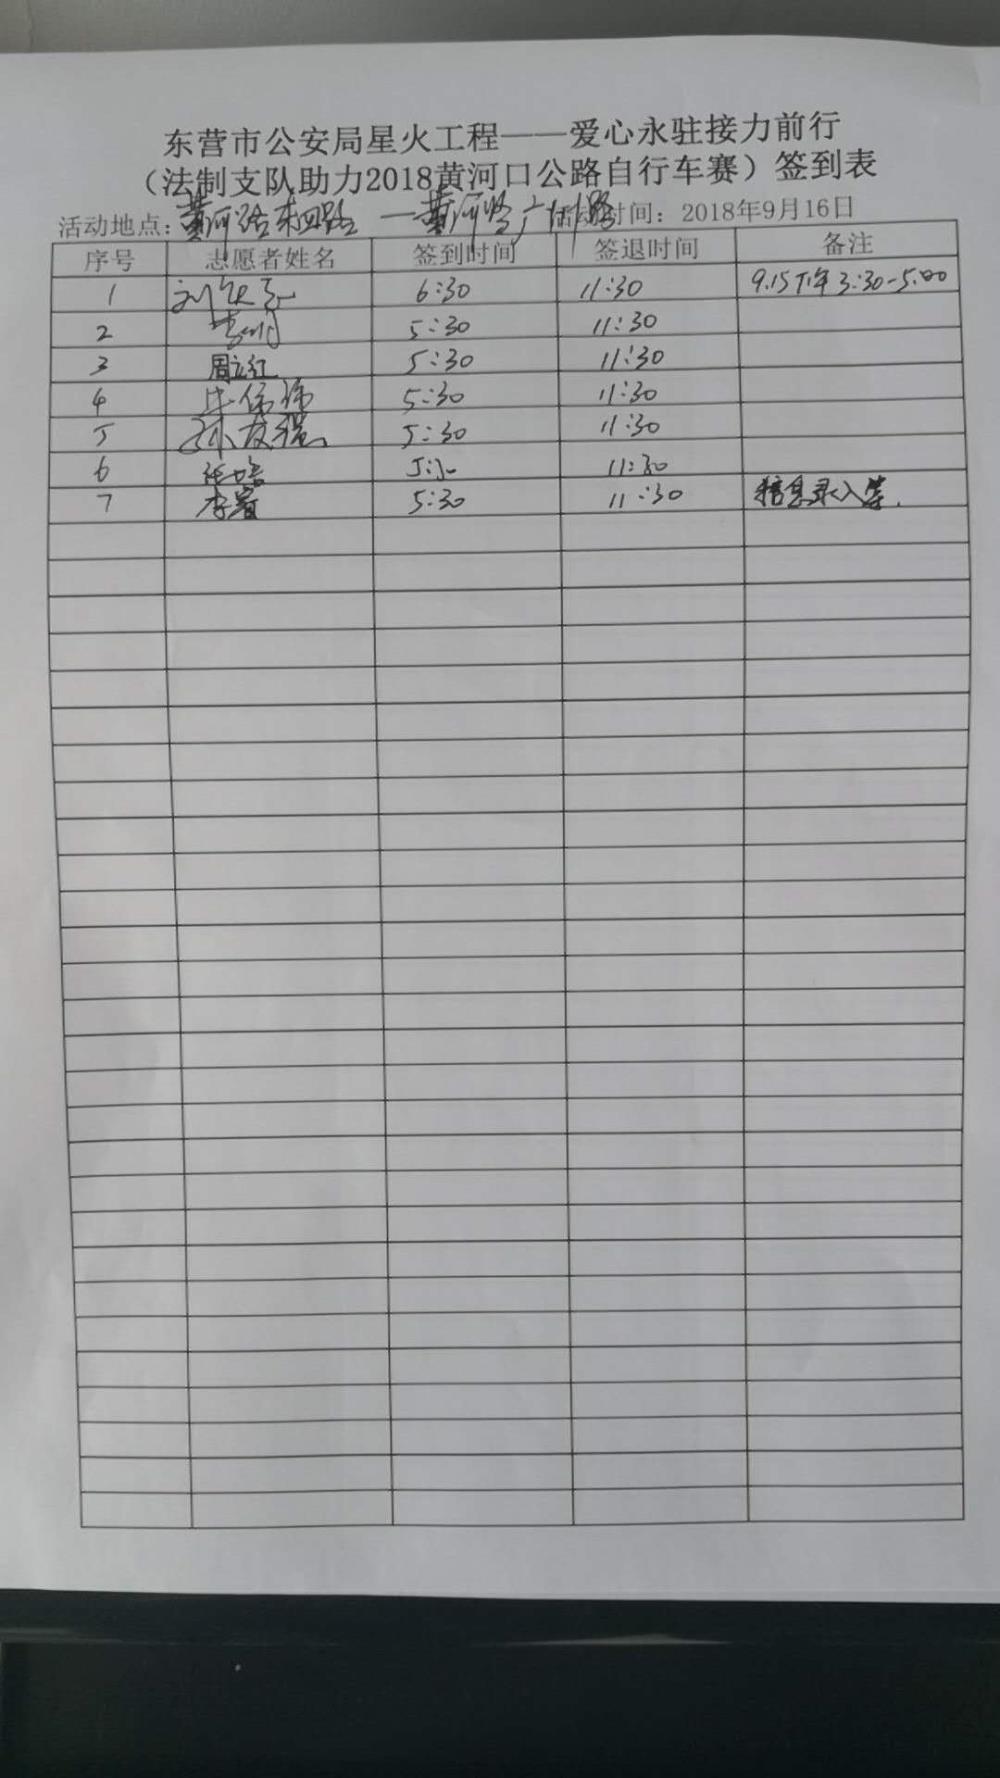 东营市公安局星火工程——爱心永驻接力前行
（法制支队助力2018黄河口公路自行车赛）签到表
活动地点：黄河路东四路 — 黄河路广州路 时间：2018年9月16日
序号 志愿者姓名 签到时间 签退时间 备注
1 刘 6:30 11:30 9.15下午3:30-5:00
2 5:30 11:30
3 周立红 5:30 11:30
4 5:30 11:30
5 孙友 5:30 11:30
6 张 5:30 11:30
7 李 5:30 11:30 信息录入等.